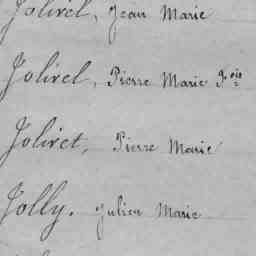 Jolivel, Jean Marie
Jolivel, Pierre Marie Fois
Jolivet, Pierre Marie
Jolly. Julien Marie